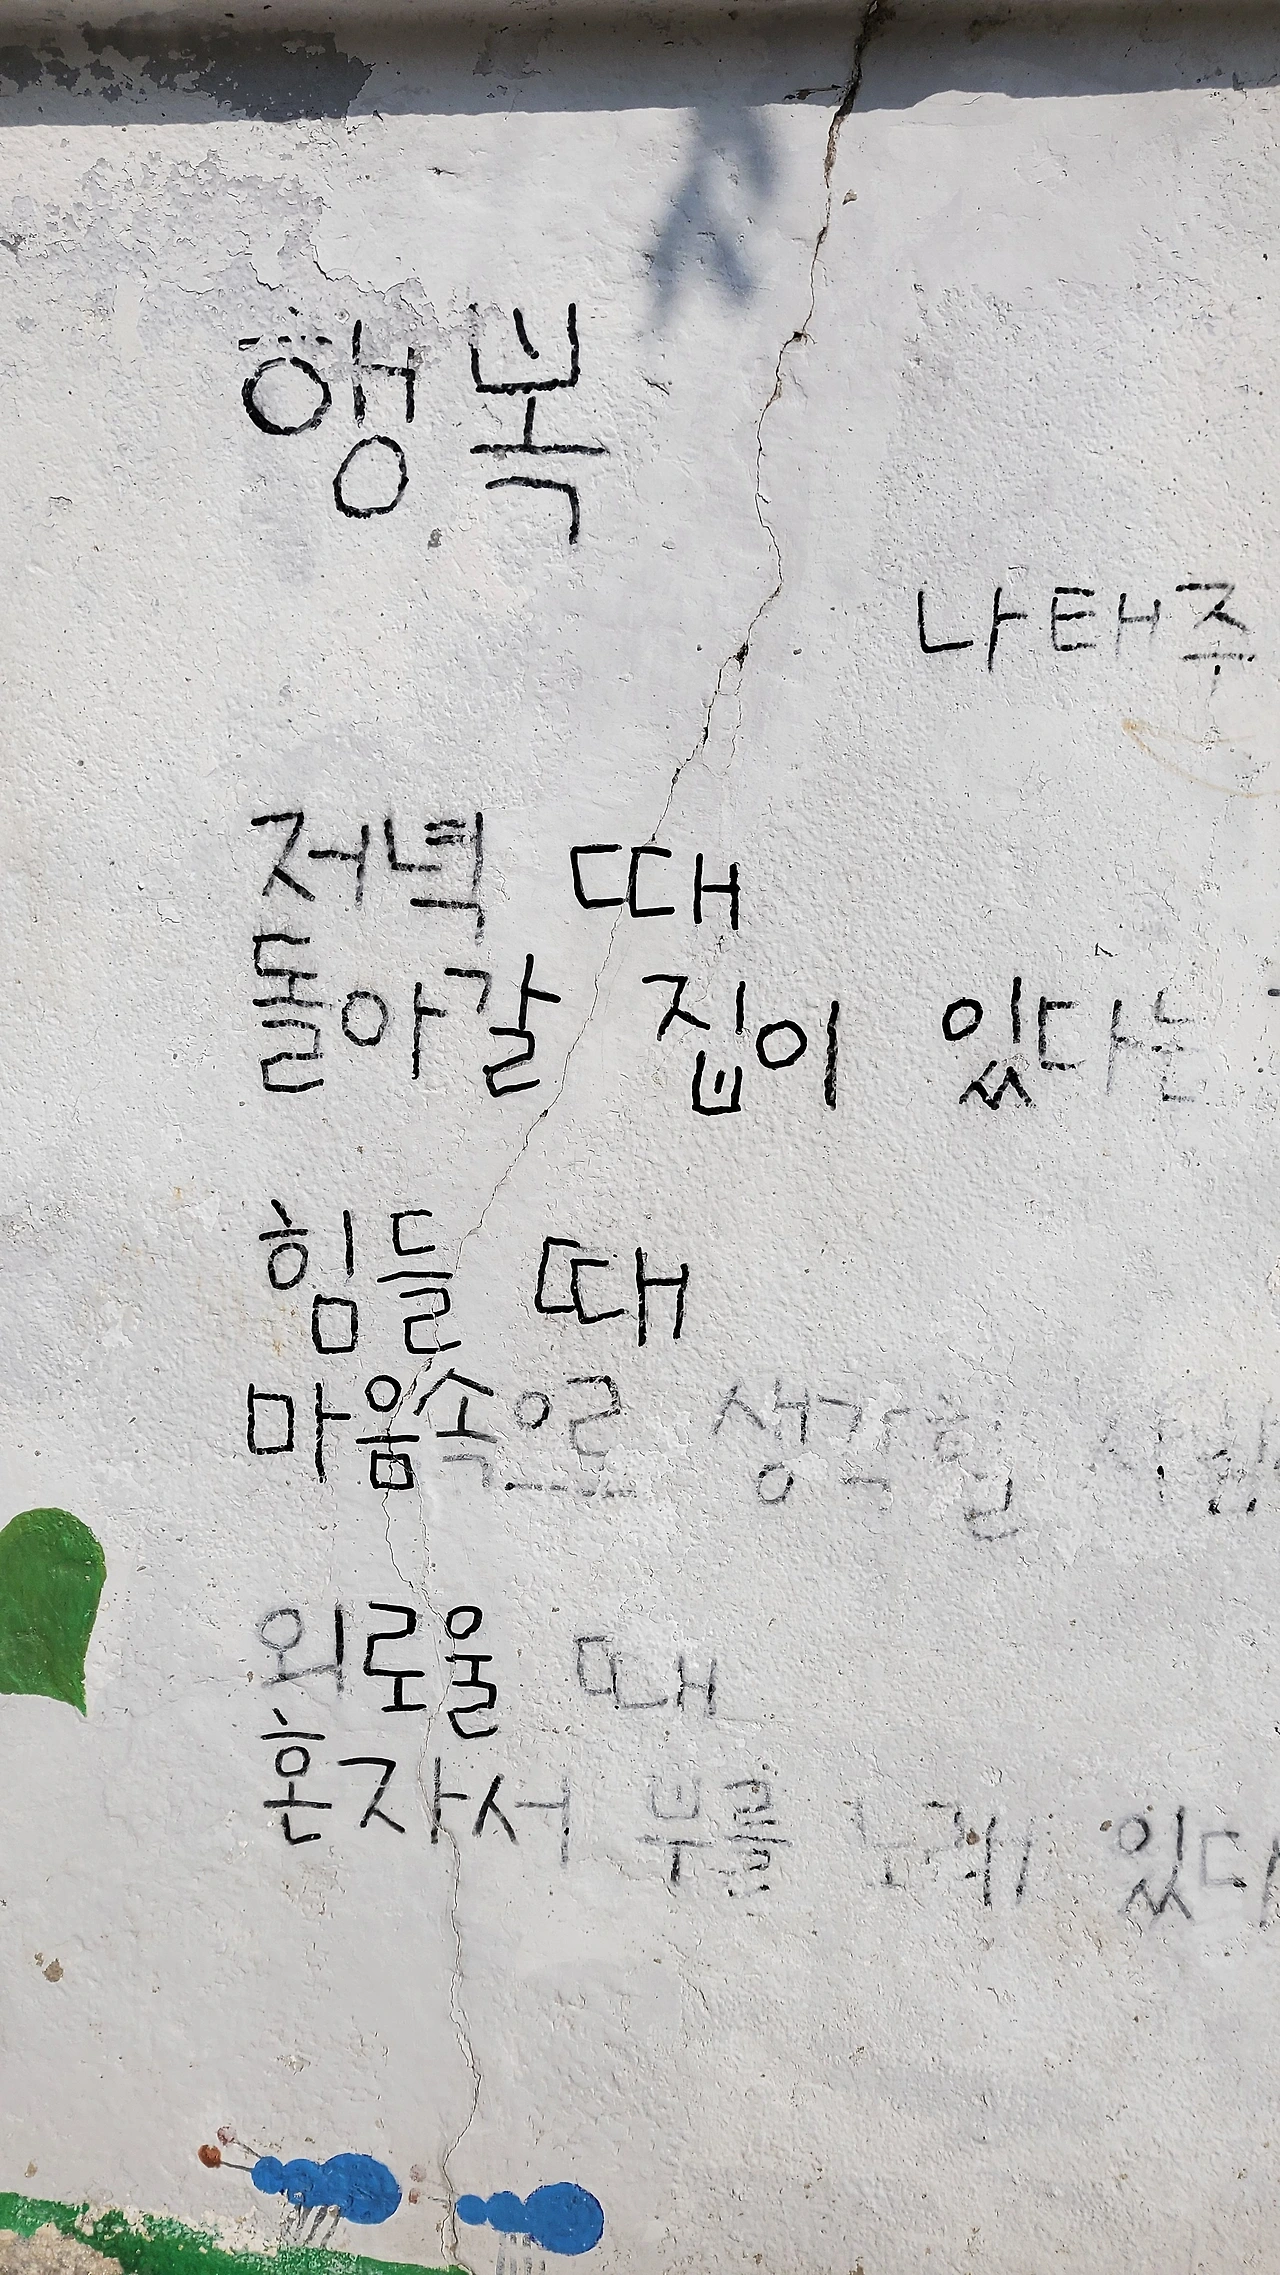 행복
나태주
저녁 때
돌아갈 집이 있다는
힘들 때
마음속으로 생각할 사람
외로울 때
혼자서 부를 노래 있다